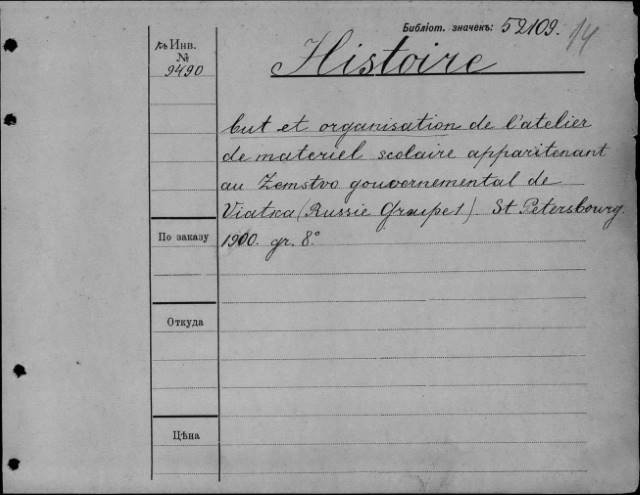 Библіот. значекъ: 52109. 14
къ Инв.
№
9490
Histoire
but et organisation de l'atelier
de materiel scolaire apparitenant
au Zemstvo gouvernemental de
Viatka (Russie Groupe 1). St Petersbourg.
1900. gr. 8°
По заказу
Откуда
Цѣна